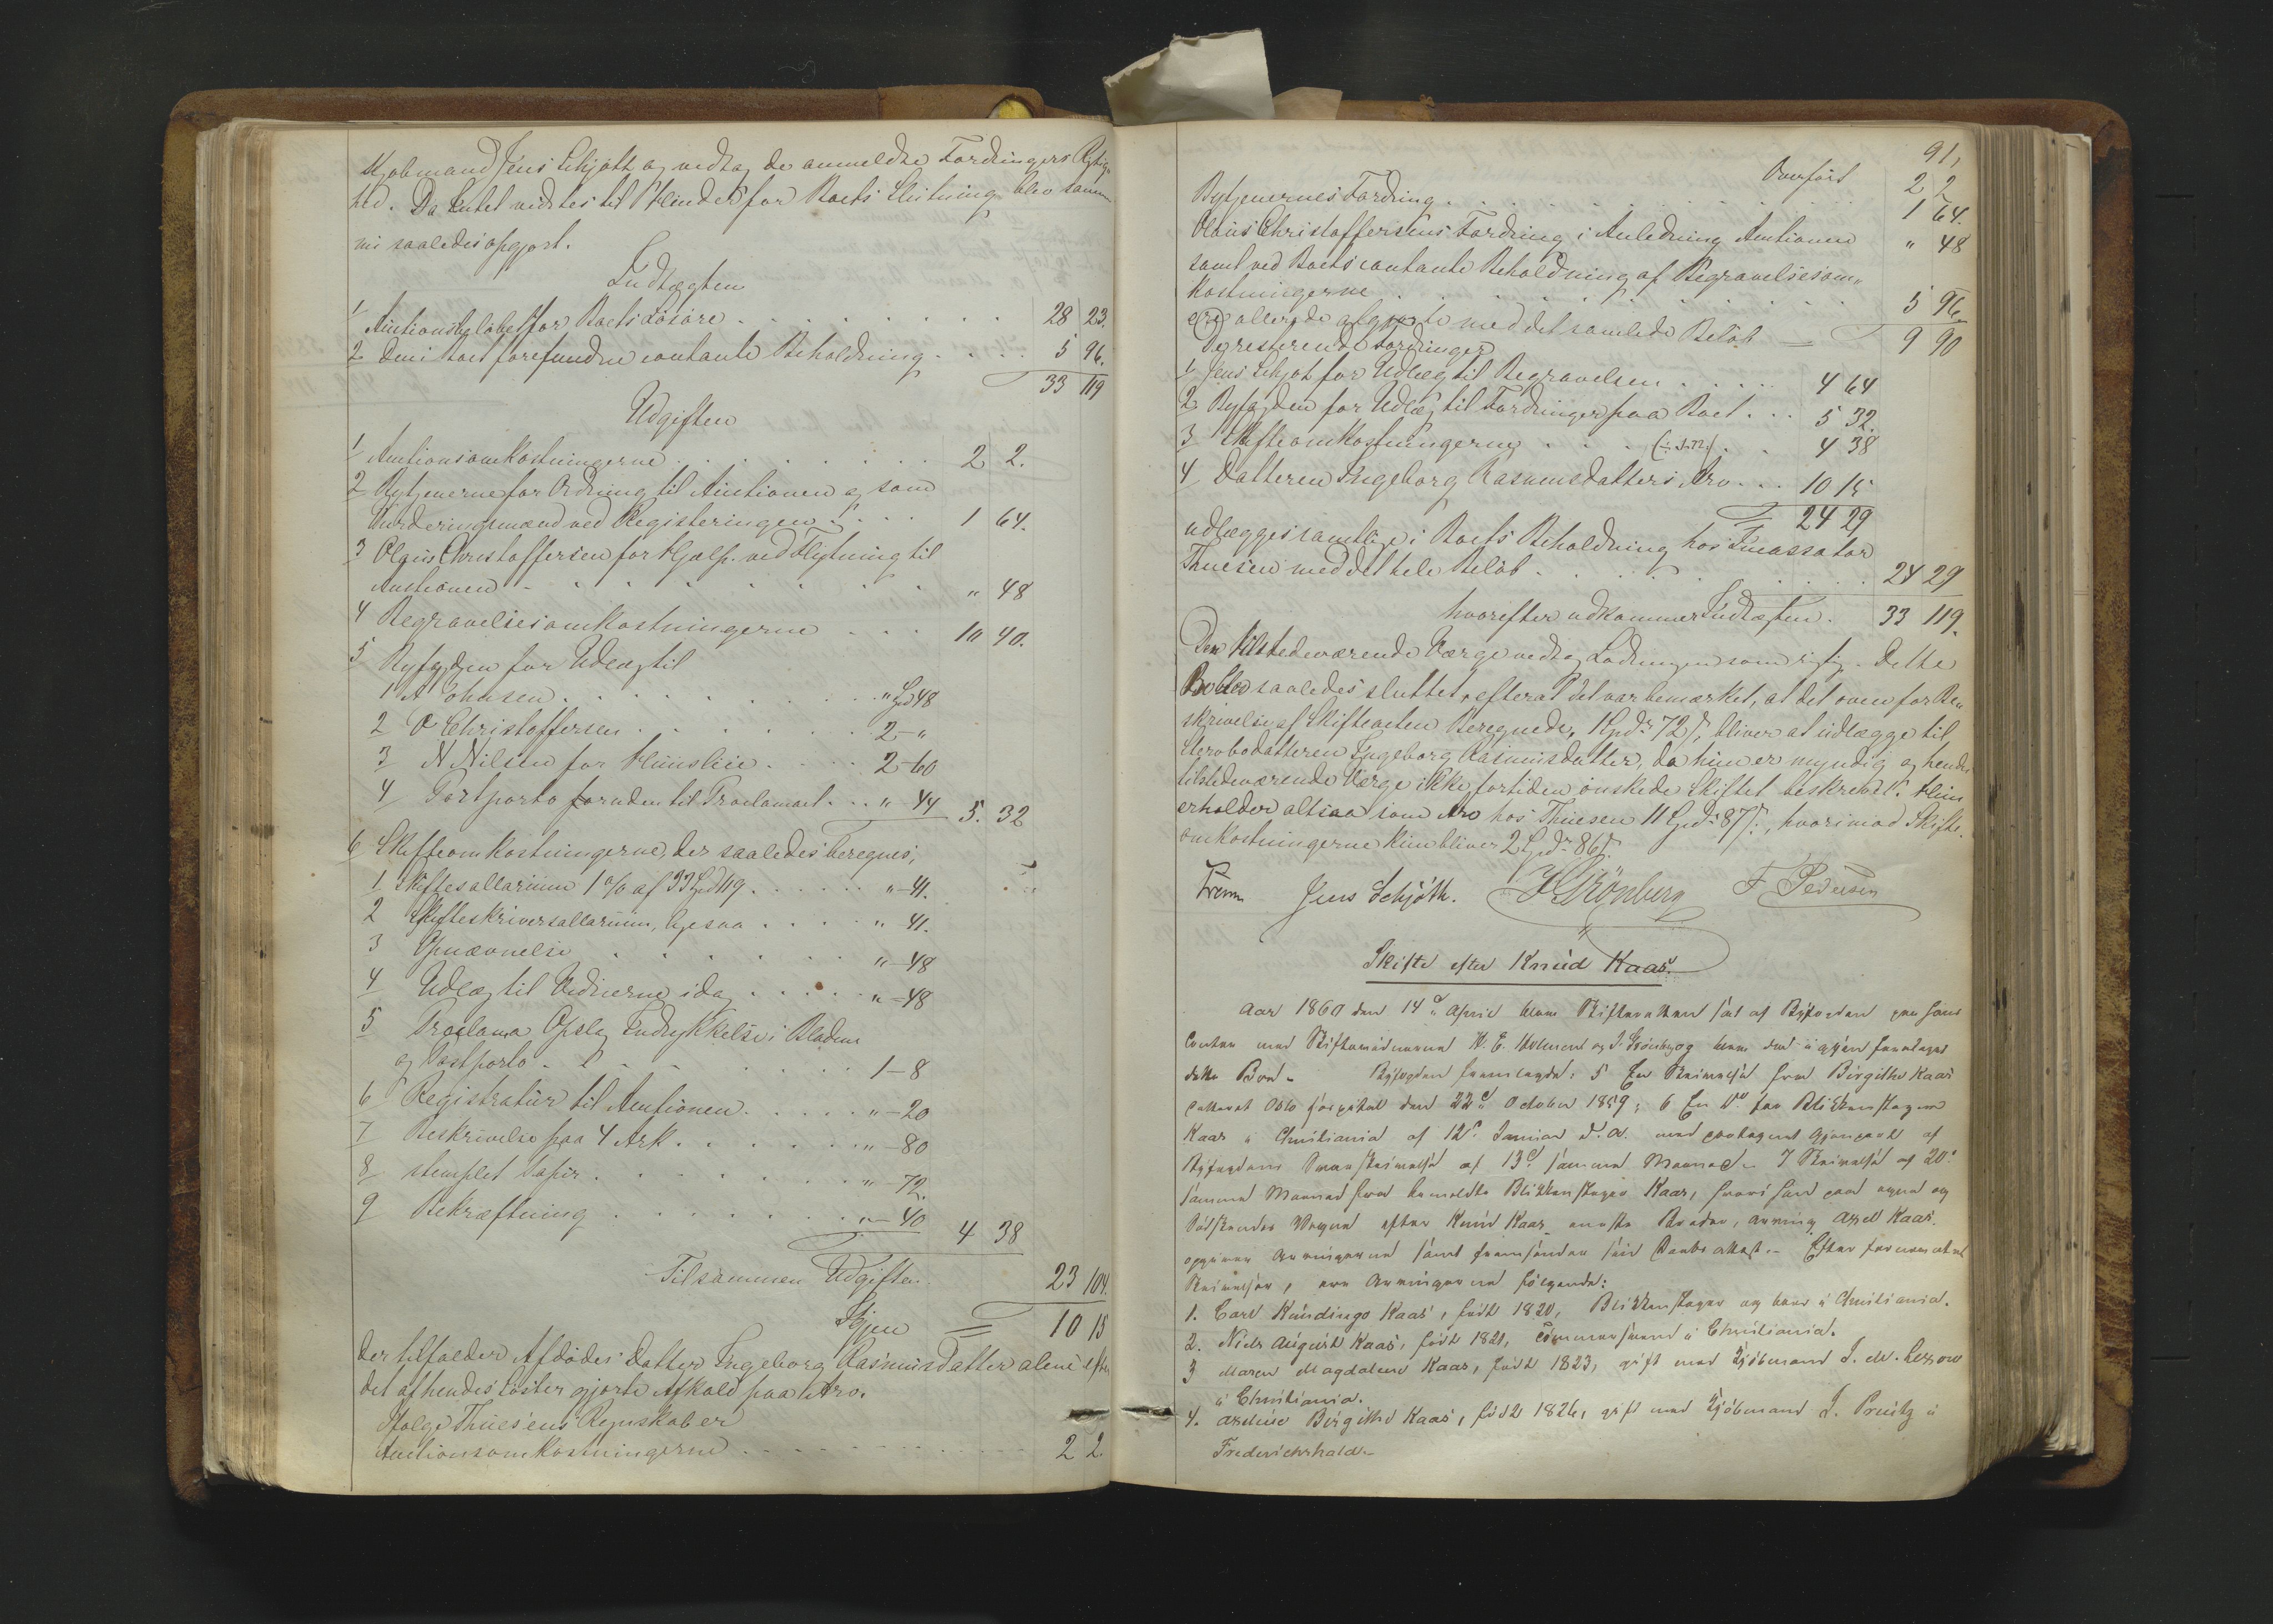 Kjøbmand Jens Schjøtt og vedtog de anmeldte Fordringers Rigtig„
hed. Da Intet vidstes til Hinder for Boets Slutning blev samme
nu saaledes opgjort.
Indtægten
1 Auctionsbeløbet for Boets Løsøre . . . 28 23.
2 Den i Boet forefundne contante Beholdning . . . 5 96.
33 119
Udgiften
1 Auctionsomkostningerne . . . 2 2.
2 Bytjenerne for Ordning til Auctionen og som
Vurderingsmænd ved Registeringen . . . 1 64.
3 Olaus Christoffersen for Hjælp ved Flytning til
Auctionen . . . „ 48
4 Begravelsesomkostningerne . . . 10 40.
5 Byfogden for Udlæg til
1 A Johnsen . . . „ Spd 48
2 O Christoffersen . . . 2 – „
3 N Nilsen for Huusleie . . . 2 – 60
4 Postporto foruden til Proclamaet . . . „ – 44 5. 32
6 Skifteomkostningerne, der saaledes beregnes;
1 Skiftesallarium 1 % af 33 Spd 119 . . . „ – 41.
2 Skifteskriversallarium, ligesaa . . . „ 41.
3 Opnævnelse . . . „ – 48
4 Udlæg til Vidnerne idag . . . „ – 48
5 Proclama Opslag Indrykkelse i Bladene
og Postporto . . . 1 – 8
6 Registratur til Auctionen . . . „ – 20
7 Beskrivelse paa 4 Ark . . . „ – 80
8 stemplet Papir . . . „ – 72.
9 Bekræftning . . . „ – 40 4 38
Tilsammen Udgifter. 23 104.
Igjen = 10 15
der tilfalder Afdødes Datter Ingeborg Rasmusdatter alene efter
det af hendes Søster gjorte Afkald paa Arv.
Ifølge Thuesens Regnskab er
Auctionsomkostningerne . . . 2 2.
91,
Overført 2 2
Bytjenernes Fordring . . . 1 64.
Olaus Christoffersens Fordring i Anledning Auctionen „ 48
samt ved Boets contante Beholdning af Begravelsesom„
kostningerne . . . 5 96.
ere allerede afgjorte med det samlede Beløb = 9 90
De resterende Fordringer
1 Jens Schjøt for Udlæg til Begravelsen . . . 4 64
2 Byfogden for Udlæg til Fordringer paa Boet . . . 5 32.
3 Skifteomkostningerne . . . 4 38
4 Datteren Ingeborg Rasmusdatters Arv . . . 10 15
24 29
udlægges samtlige i Boets Beholdning hos Incassator
Thuesen med det hele Beløb . . . 24 29
hvorefter udkommer Indtægten. 33 119.
Den tilstedeværende Værge vedtog Lodningen som rigtig. Dette
Bo blev saaledes sluttet, efterat det var bemærket, at det ovenfor Be„
skrivelse af Skifteacten Beregnede, 1 Spd. 72 ß, bliver at udlægge til
Stervbodatteren Ingeborg Rasmusdatter, da hun er myndig og hendes
tilstedeværende Værge ikke fortiden ønskede Skiftet beskrevet. Hun
erholder altsaa som Arv hos Thuesen 11 Spd. 87 ß., hvorimod Skifte„
omkostningerne kun bliver 2 Spd. 86 ß.
Jens Schjøth. H Grønberg F Pedersen
Skifte efter Knud Kaas.
Aar 1860 den 14d. April blev Skifteretten sat af Byfogden paa hans
Contor med Skiftevidnerne og blev da igjen foretaget
dette Boe. – Byfogden fremlagde: 5 En Skrivelse fra Birgithe Kaas
dateret Oslo Hospital den 22d October 1859; 6 En Do. fra Blikkenslager
Kaas i Christiania af 12d. Januar d. A. med paategnet Gjenpart af
Byfogdens Svarskrivelse af 13d. samme Maaned. – 7 Skrivelse af 20d.
samme Maaned fra bemeldte Blikkenslager Kaas, hvori han paa egne og
Sødskendes Vegne efter Knud Kaas Kaas.
opgiver Arvingerne samt fremsender sin Daabsattest. – Efter fornævnte
Skrivelser, ere Arvingerne følgende:
1. Carl Kundingo Kaas, født 1820, Blikkenslager og boer i Christiania.
2. Niels August Kaas, født 1821, Tømmermand i Christiania.
3 Maren Magdalene Kaas, født 1823, gift med Kjøbmand
i Christiania.
4. Birgithe Kaas, født 1826, gift med Kjøbmand J. Preutz i
Frederichshald. –